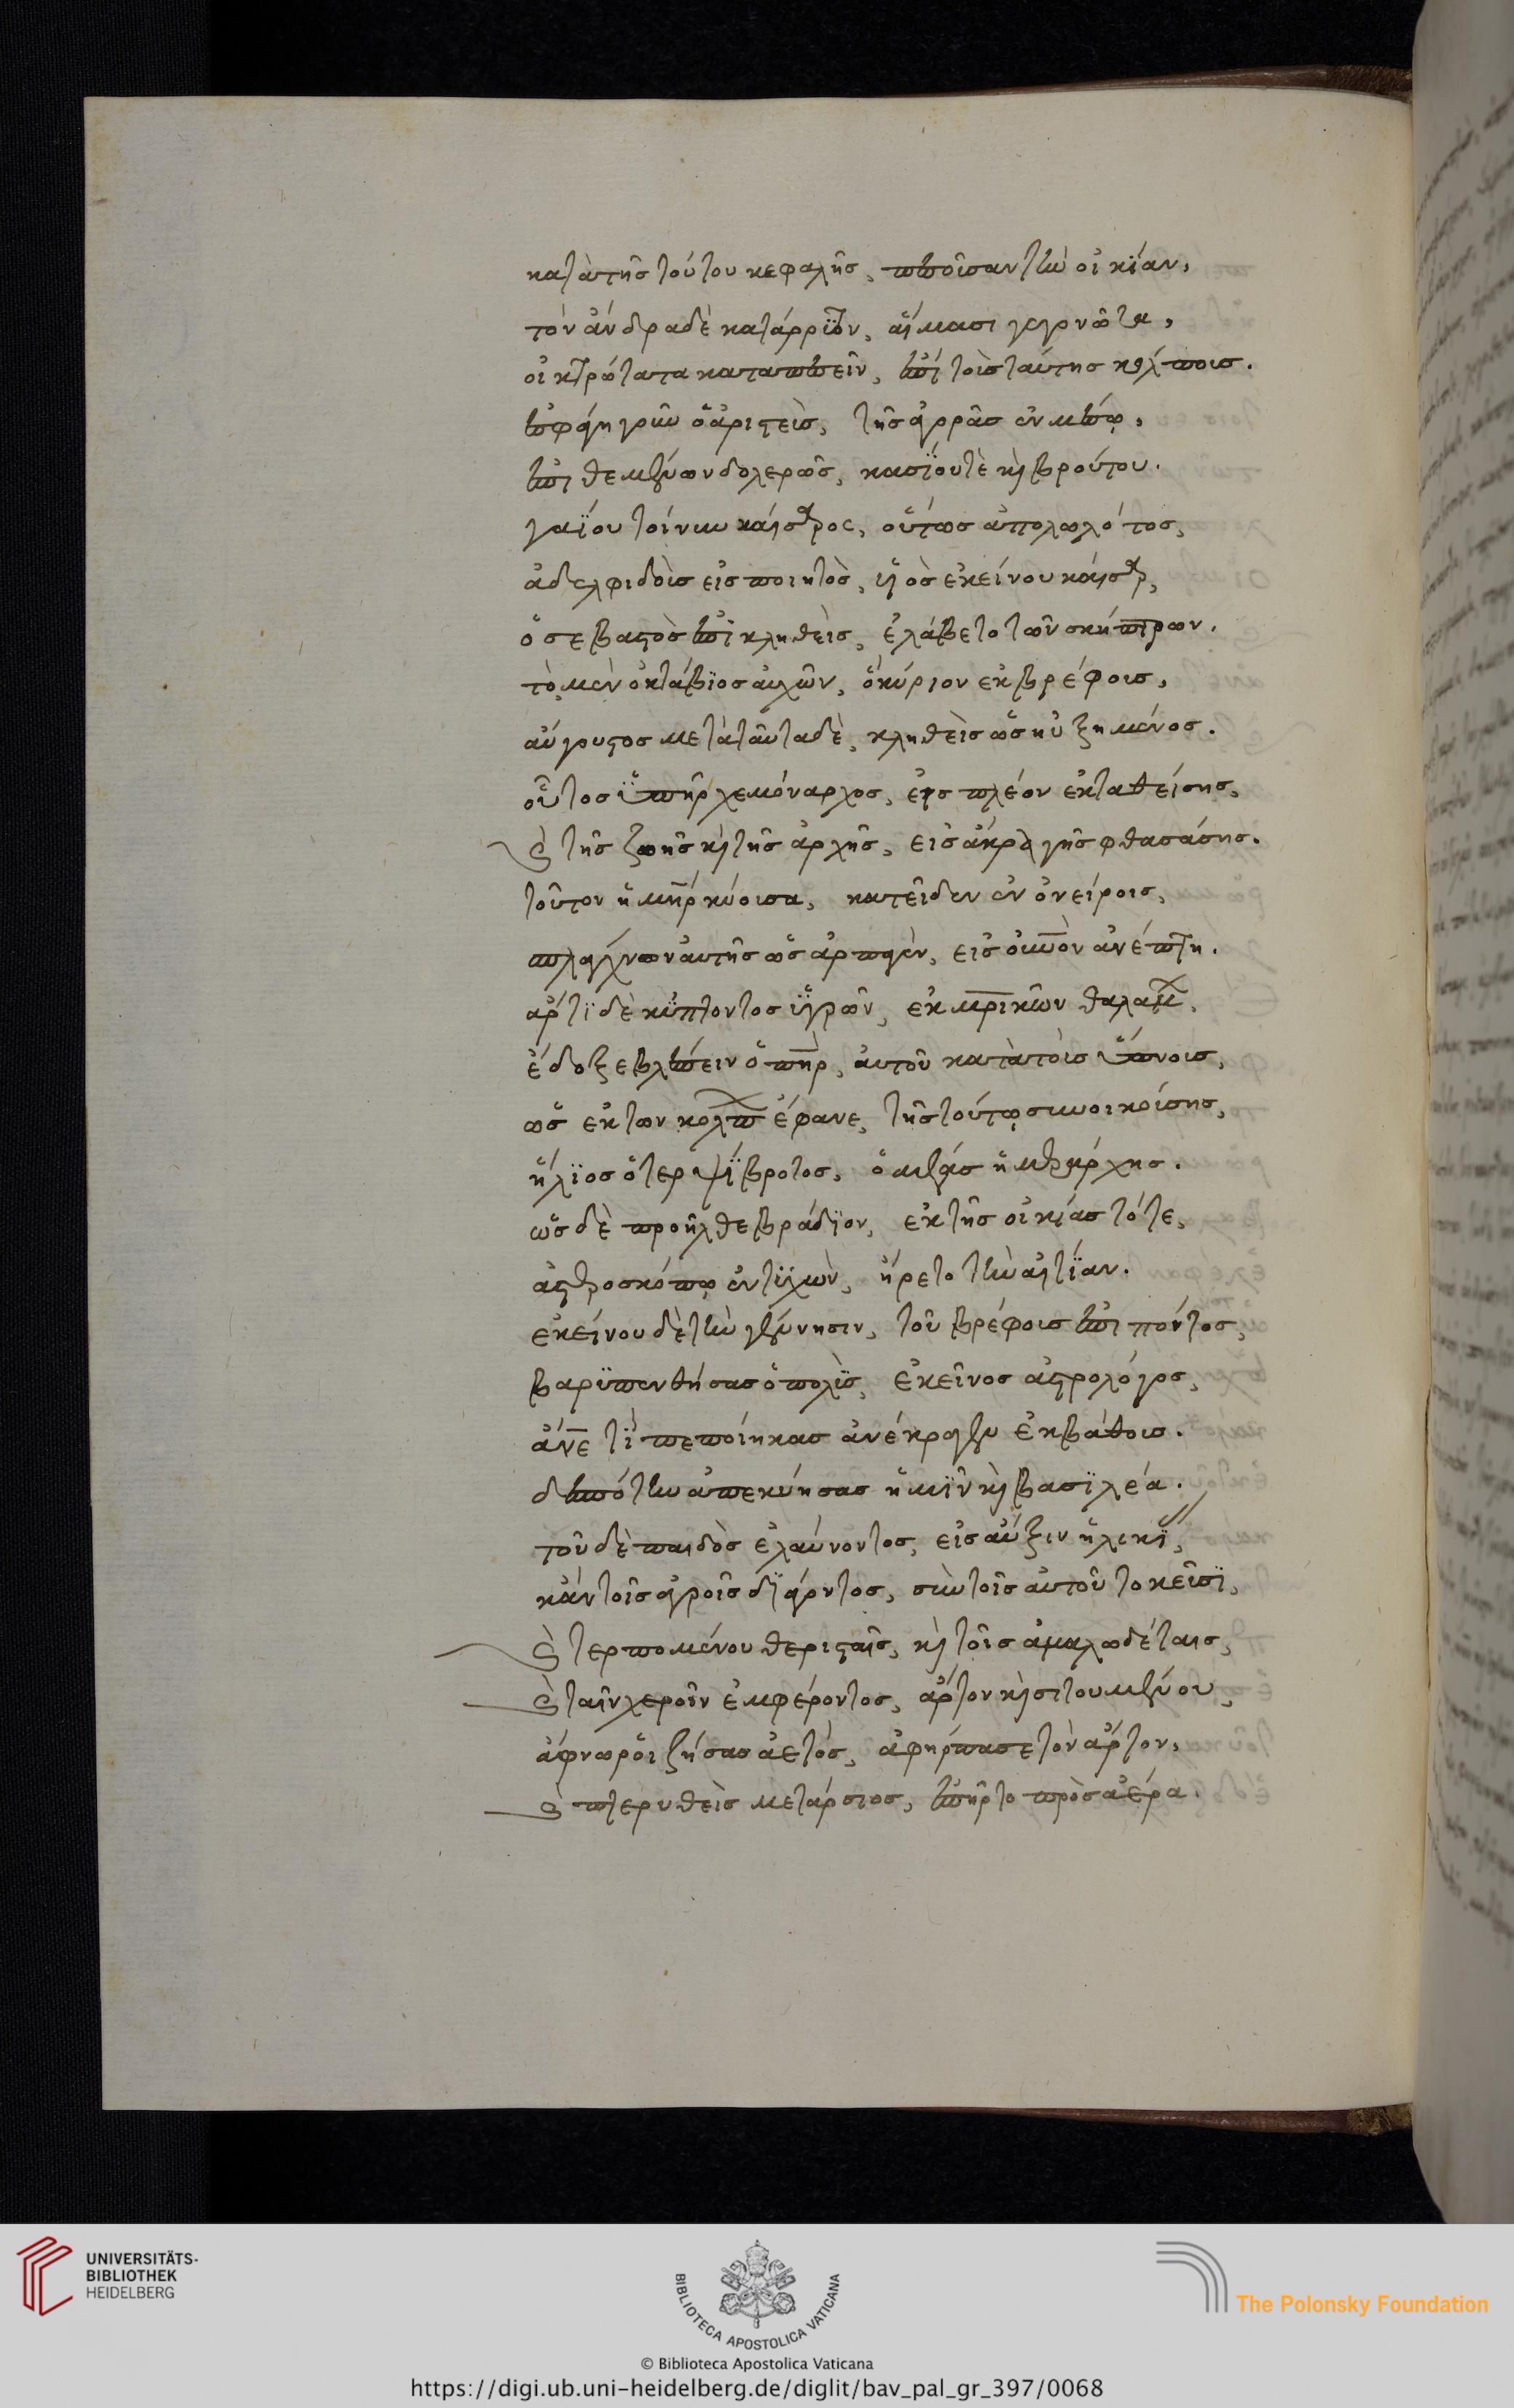 κατὰ τῆς τούτου κεφαλῆς, πεσοῦσαν τὴν οἰκίαν,
τὸν ἄνδρα δὲ κατάρρυτον, αἵμασι γεγονότα,
οἰκτρότατα καταπεσεῖν, ἐπὶ τοῖς ταύτης κόλποις.
ἐσφάγη γοῦν ὁ ἀριστεὺς, τῆς ἀγορᾶς ἐν μέσῳ,
ἐπιθεμένων δολερῶς, κασίου τὲ καὶ βρούτου.
γαΐου τοίνυν καίσαρος, οὕτως ἀπολωλότος,
ἀδελφιδοῦς εἰσποιητὸς, υἱὸς ἐκείνου καῖσαρ,
ὁ σεβαστὸς ἐπικληθεὶς, ἐλάβετο τῶν σκήπτρων.
τὸ μὲν ὀκτάβϊος αὐχῶν, ὁ κύριον ἐκ βρέφους,
αὔγουστος μετὰ ταῦτα δὲ, κληθεὶς ὡς ηὐξημένος.
οὗτος ὑπῆρχε μόναρχος, εἰς πλέον ἐκταθείσης,
καὶ τῆς ζωῆς καὶ τῆς ἀρχῆς, εἰς ἄκρα γῆς φθασάσης.
τοῦτον ἡ μήτηρ κύουσα, κατεῖδεν ἐν ὀνείροις,
σπλάγχνων αὐτῆς ὡς ἁρπαγὲν, εἰς οὐρανὸν ἀνέπτη.
ἄρτϊ δὲ κύπτοντος ὑγρῶν, ἐκ μητρικῶν θαλάμων,
ἔδοξε βλέπειν ὁ πατὴρ, αὐτοῦ κατὰ τοὺς ὕπνους,
ὡς ἐκ τῶν κόλπων ἔφανε, τῆς τούτῳ συνοικούσης,
ἥλϊος ὁ τερψίβροτος, ὁ μέγας ἡμεράρχης.
ὡς δὲ προῆλθε βράδϊον, ἐκ τῆς οἰκίας τότε,
ἀστεροσκόπῳ ἐντυχὼν, ἤρετο τὴν αἰτίαν.
ἐκείνου δὲ τὴν γέννησιν, τοῦ βρέφους ἐπιπόντος,
βαρϋπενθήσας ὁ πολὺς, ἐκεῖνος ἀστρολόγος,
ἄνερ τί πεποίηκας ἀνέκραγεν ἐκ βάθους.
δεσπότην ἀπεκύησας ἡμῖν καὶ βασϊλέα.
τοῦ δὲ παιδὸς ἐλαύνοντος, εἰς αὔξιν ἡλικίας,
κἀν τοῖς ἀγροῖς διάγοντος, σὺν τοῖς αὐτοῦ τοκεῦσϊ,
καὶ τερπομένου θερισταῖς, καὶ τοῖς ἀμαλωδέταις,
καὶ ταῖν χεροῖν ἐμφέροντος, ἄρτον καὶ σιτουμένου,
ἄφνω ῥοιζήσας ἀετὸς, ἀφήρπασε τὸν ἄρτον,
καὶ πτερυθεὶς μετάρσιος, ἐπῆρτο πρὸς ἀέρα.
UNIVERSITÄTS-
BIBLIOTHEK
HEIDELBERG
BIBLIOTECA APOSTOLICA VATICANA
The Polonsky Foundation
© Biblioteca Apostolica Vaticana
https://digi.ub.uni-heidelberg.de/diglit/bav_pal_gr_397/0068